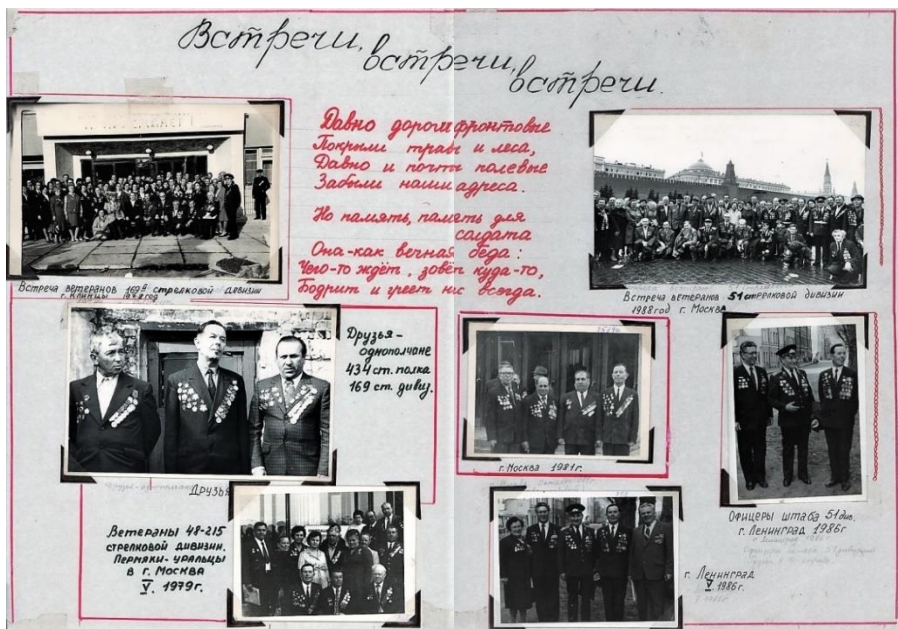 Встречи,
встречи,
встречи.
Давно дороги фронтовые
Покрыли травы и леса,
Давно и почты полевые
Забыли наши адреса.
Но память, память для
солдата
Она-как вечная беда:
Чего-то ждёт, зовёт куда-то,
Бодрит и греет нас всегда.
Встреча ветеранов 169й стрелковой дивизии
г. Клинцы 1978 год
Встреча ветеранов 51 стрелковой дивизии
1988 год г. Москва
Друзья-
однополчане
434 ст. полка
169 ст. дивиз.
Друзья
г. Москва 1981г.
Офицеры штаба 51 див.
г. Ленинград 1986г
Ветераны 48-215
стрелковой дивизии.
Пермяки-уральцы
в г. Москва
V. 1979г.
г. Ленинград
V. 1986г.